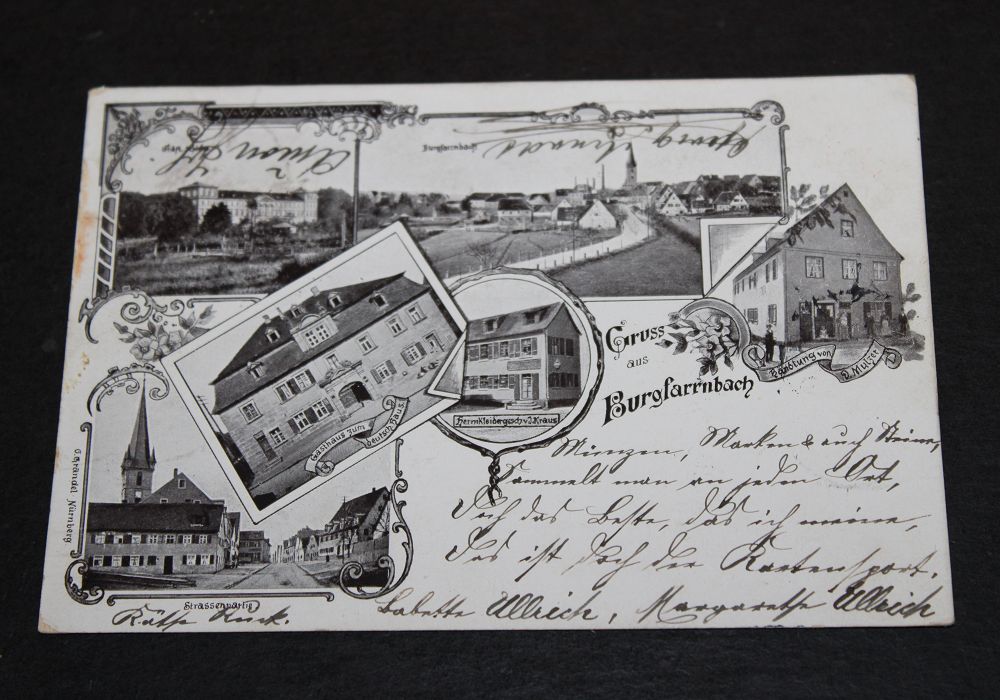 Burgfarrnbach
Georg
Gruss
aus
Burgfarrnbach
Handlung von
D. Mulzer
Gasthaus zum
deutsch. Haus.
Herrnkleidergesch. v. J. Kraus
G. Gründel Nürnberg
Strassenpartie
Münzen, Marken & auch Steine,
Sammelt man an jedem Ort,
Doch das Beste, das ich meine,
Das ist doch der Kartensport.
Babette Ullrich, Margarethe Ullrich
Käthe Kuck.